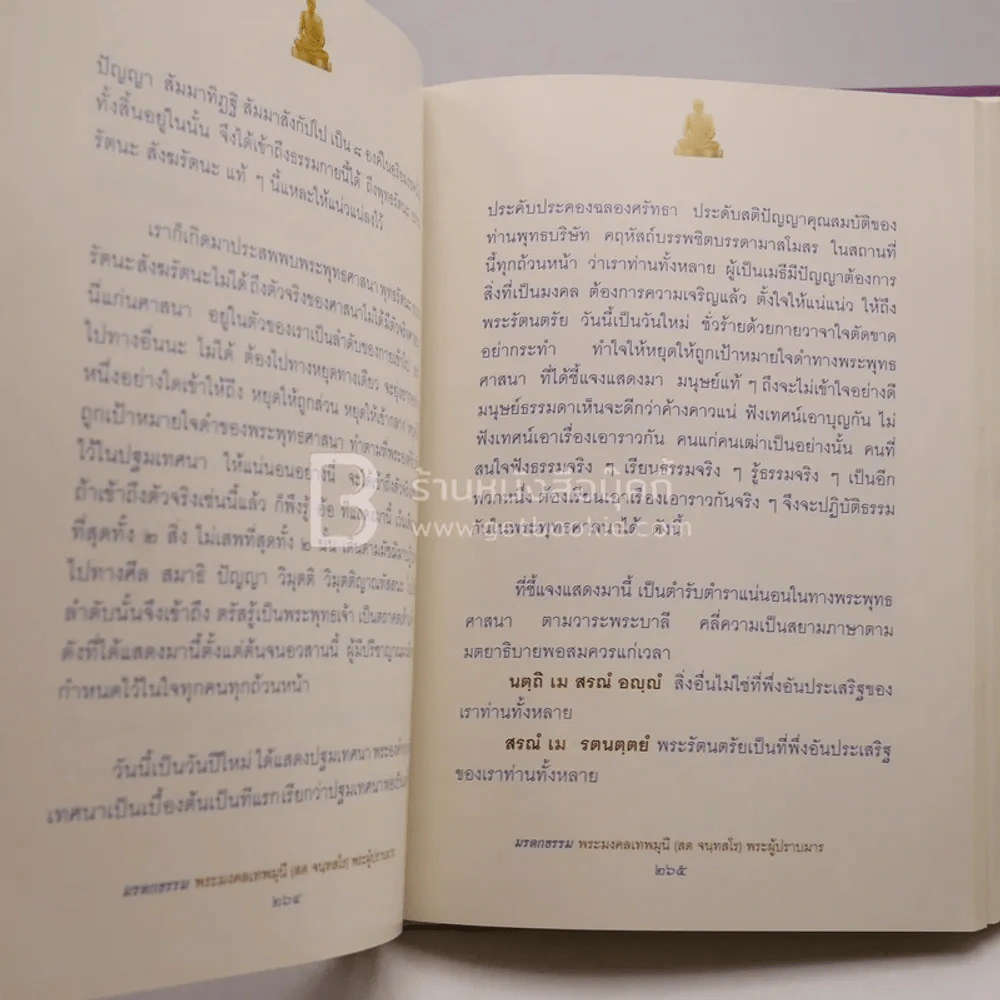 ปัญญา สัมมาทิฏฐิ สัมมาสังกัปโป เป็น ๘ องค์ในอริย
ทั้งสิ้นอยู่ในนั้น จึงได้เข้าถึงธรรมกายนี้ได้ ถึงพุทธรัตนะ
รัตนะ สังฆรัตนะ แท้ ๆ นี้แหละให้แน่วแน่ลงไว้
เราก็เกิดมาประสพพบพระพุทธศาสนา พุทธรัตนะ
รัตนะสังฆรัตนะไม่ได้ ถึงตัวจริงของศาสนาไม่ได้
นี่แก่นศาสนา อยู่ในตัวของเราเป็นลำดับของกายเข้าไป
ไปทางอื่นนะ ไม่ได้ ต้องไปทางหยุดทางเดียว
หนึ่งอย่างใดเข้าให้ถึง หยุดให้ถูกส่วน หยุดให้เข้ากลาง
ถูกเป้าหมายใจดำของพระพุทธศาสนา ทำตามที่
ไว้ในปฐมเทศนา ให้แน่นอนอย่างนี้
ถ้าเข้าถึงตัวจริงเช่นนี้แล้ว ก็พึงรู้
ที่สุดทั้ง ๒ สิ่ง ไม่เสพที่สุดทั้ง ๒ นั้น
ไปทางศีล สมาธิ ปัญญา วิมุตติ วิมุตติญาณทัสสนะ
ลำดับนั้นจึงเข้าถึง ตรัสรู้เป็นพระพุทธเจ้า
ดังที่ได้แสดงมานี้ตั้งแต่ต้นจนอวสานนี้
กำหนดไว้ในใจทุกคนทุกถ้วนหน้า
วันนี้เป็นวันปีใหม่ ได้แสดงปฐมเทศนา
เทศนาเป็นเบื้องต้นเป็นทีแรกเรียกว่าปฐมเทศนา
มรดกธรรม พระมงคลเทพมุนี (สด จนฺทสโร) พระผู้ปราบมาร
๒๖๔
ประคับประคองฉลองศรัทธา ประดับสติปัญญาคุณสมบัติของ
ท่านพุทธบริษัท คฤหัสถ์บรรพชิตบรรดามาสโมสร ในสถานที่
นี้ทุกถ้วนหน้า ว่าเราท่านทั้งหลาย ผู้เป็นเมธีมีปัญญาต้องการ
สิ่งที่เป็นมงคล ต้องการความเจริญแล้ว ตั้งใจให้แน่แน่ว ให้ถึง
พระรัตนตรัย วันนี้เป็นวันใหม่ ชั่วร้ายด้วยกายวาจาใจตัดขาด
อย่ากระทำ ทำใจให้หยุดให้ถูกเป้าหมายใจดำทางพระพุทธ
ศาสนา ที่ได้ชี้แจงแสดงมา มนุษย์แท้ ๆ ถึงจะไม่เข้าใจอย่างดี
มนุษย์ธรรมดาเห็นจะดีกว่าค้างคาวแน่ ฟังเทศน์เอาบุญกัน ไม่
ฟังเทศน์เอาเรื่องเอาราวกัน คนแก่คนเฒ่าเป็นอย่างนั้น คนที่
สนใจฟังธรรมจริง ๆ เรียนธรรมจริง ๆ รู้ธรรมจริง ๆ เป็นอีก
พวกหนึ่ง ต้องเรียนเอาเรื่องเอาราวกันจริง ๆ จึงจะปฏิบัติธรรม
กันในพระพุทธศาสนาได้ ดังนี้
ที่ชี้แจงแสดงมานี้ เป็นตำรับตำราแน่นอนในทางพระพุทธ
ศาสนา ตามวาระพระบาลี คลี่ความเป็นสยามภาษาตาม
มตยาธิบายพอสมควรแก่เวลา
นตฺถิ เม สรณํ อญฺญํ สิ่งอื่นไม่ใช่ที่พึ่งอันประเสริฐของ
เราท่านทั้งหลาย
สรณํ เม รตนตฺตยํ พระรัตนตรัยเป็นที่พึ่งอันประเสริฐ
ของเราท่านทั้งหลาย
มรดกธรรม พระมงคลเทพมุนี (สด จนฺทสโร) พระผู้ปราบมาร
๒๖๕
ร้านหนังสือบุ๊คกี้
www.getbookie.com